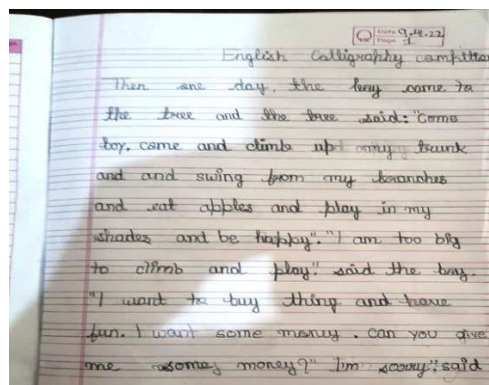 Date 9.4.22
Page 1
English Calligraphy compition
Then one day, the boy came to
the tree and the tree said: "Come
boy, come and climb up my trunk
and and swing from my branches
and eat apples and play in my
shades and be happy". "I am too big
to climb and play." said the boy.
"I want to buy thing and have
fun. I want some money. Can you give
me some money?" I'm sorry", said